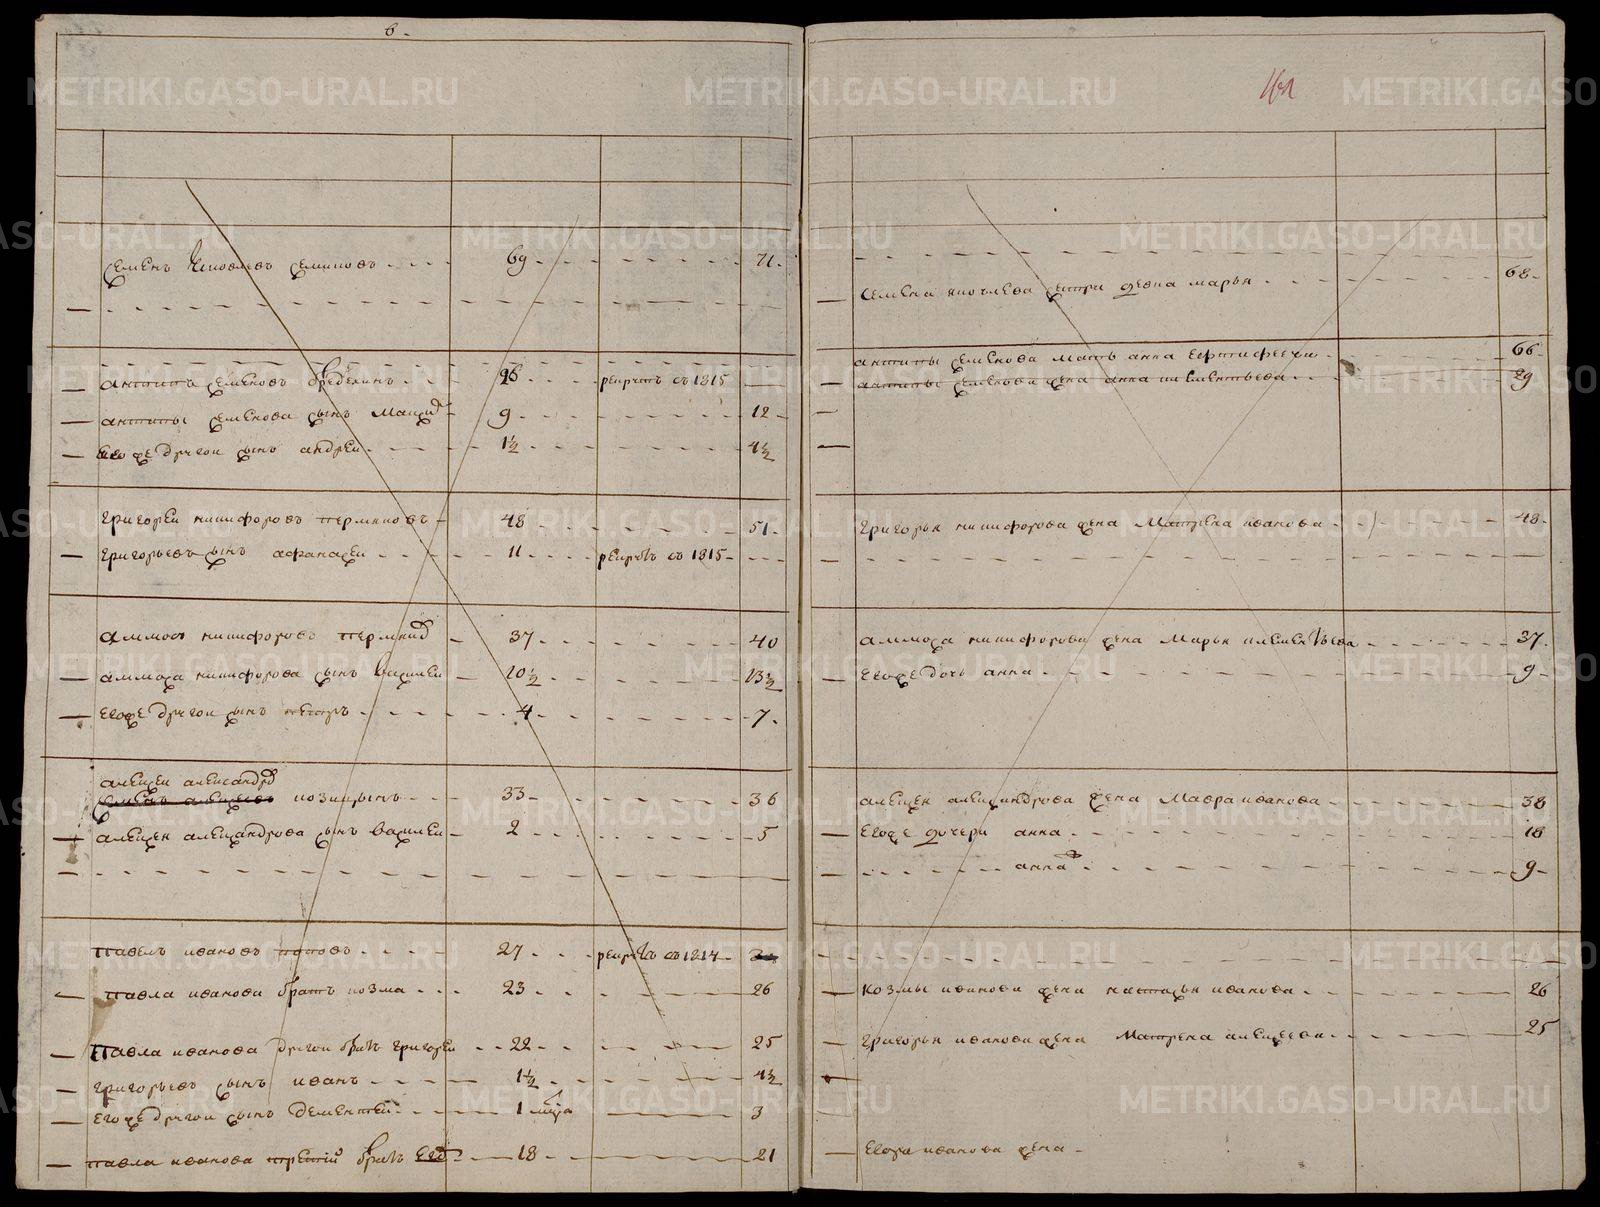 6.
Семенъ Яковлевъ Семиновъ 69 71.
Антипъ Семеновъ Бределинъ 26 рекрутъ съ 1815
Антипы Семенова сынъ 9 12
Егоже другои сынъ Андреи 1½ 4½
Григореи Никифоровъ Пермяковъ 48 51.
Григорьевъ сынъ Афанасеи 11 рекрутъ съ 1815
Аммосъ Никифоровъ 37 40
Аммоса Никифорова сынъ Василеи 10½ 13½
Егоже другои сынъ Петръ 4 7.
Алексеи Александров
Козицынъ 33 36
Алексея Александрова сынъ Василеи 2 5
Павелъ Ивановъ Поповъ 27 рекрутъ съ 1814
Павла Иванова братъ Козма 23 26
Павла Иванова другои братъ Григореи 22 25
Григорьевъ сынъ Иванъ 1½ 4½
Егоже другои сынъ Дементеи 1 3
Павла Иванова третий братъ Егор 18 21
161
Семена Яковлева сестра девка Марья 68.
Антипы Семенова мать Анна 66
Антипы Семенова жена Анна Климентьева 29
Григорья Никифорова жена Матрена Иванова 48.
Аммоса Никифорова жена Марья Климентьева 37.
Егоже дочь Анна 9
Алексея Александрова жена Мавра Иванова 38
Егоже дочери Анна 18
Анна 9
Козмы Иванова жена Настасья Иванова 26
Григорья Иванова жена Матрена Алексеева 25
Егора Иванова жена
METRIKI.GASO-URAL.RU